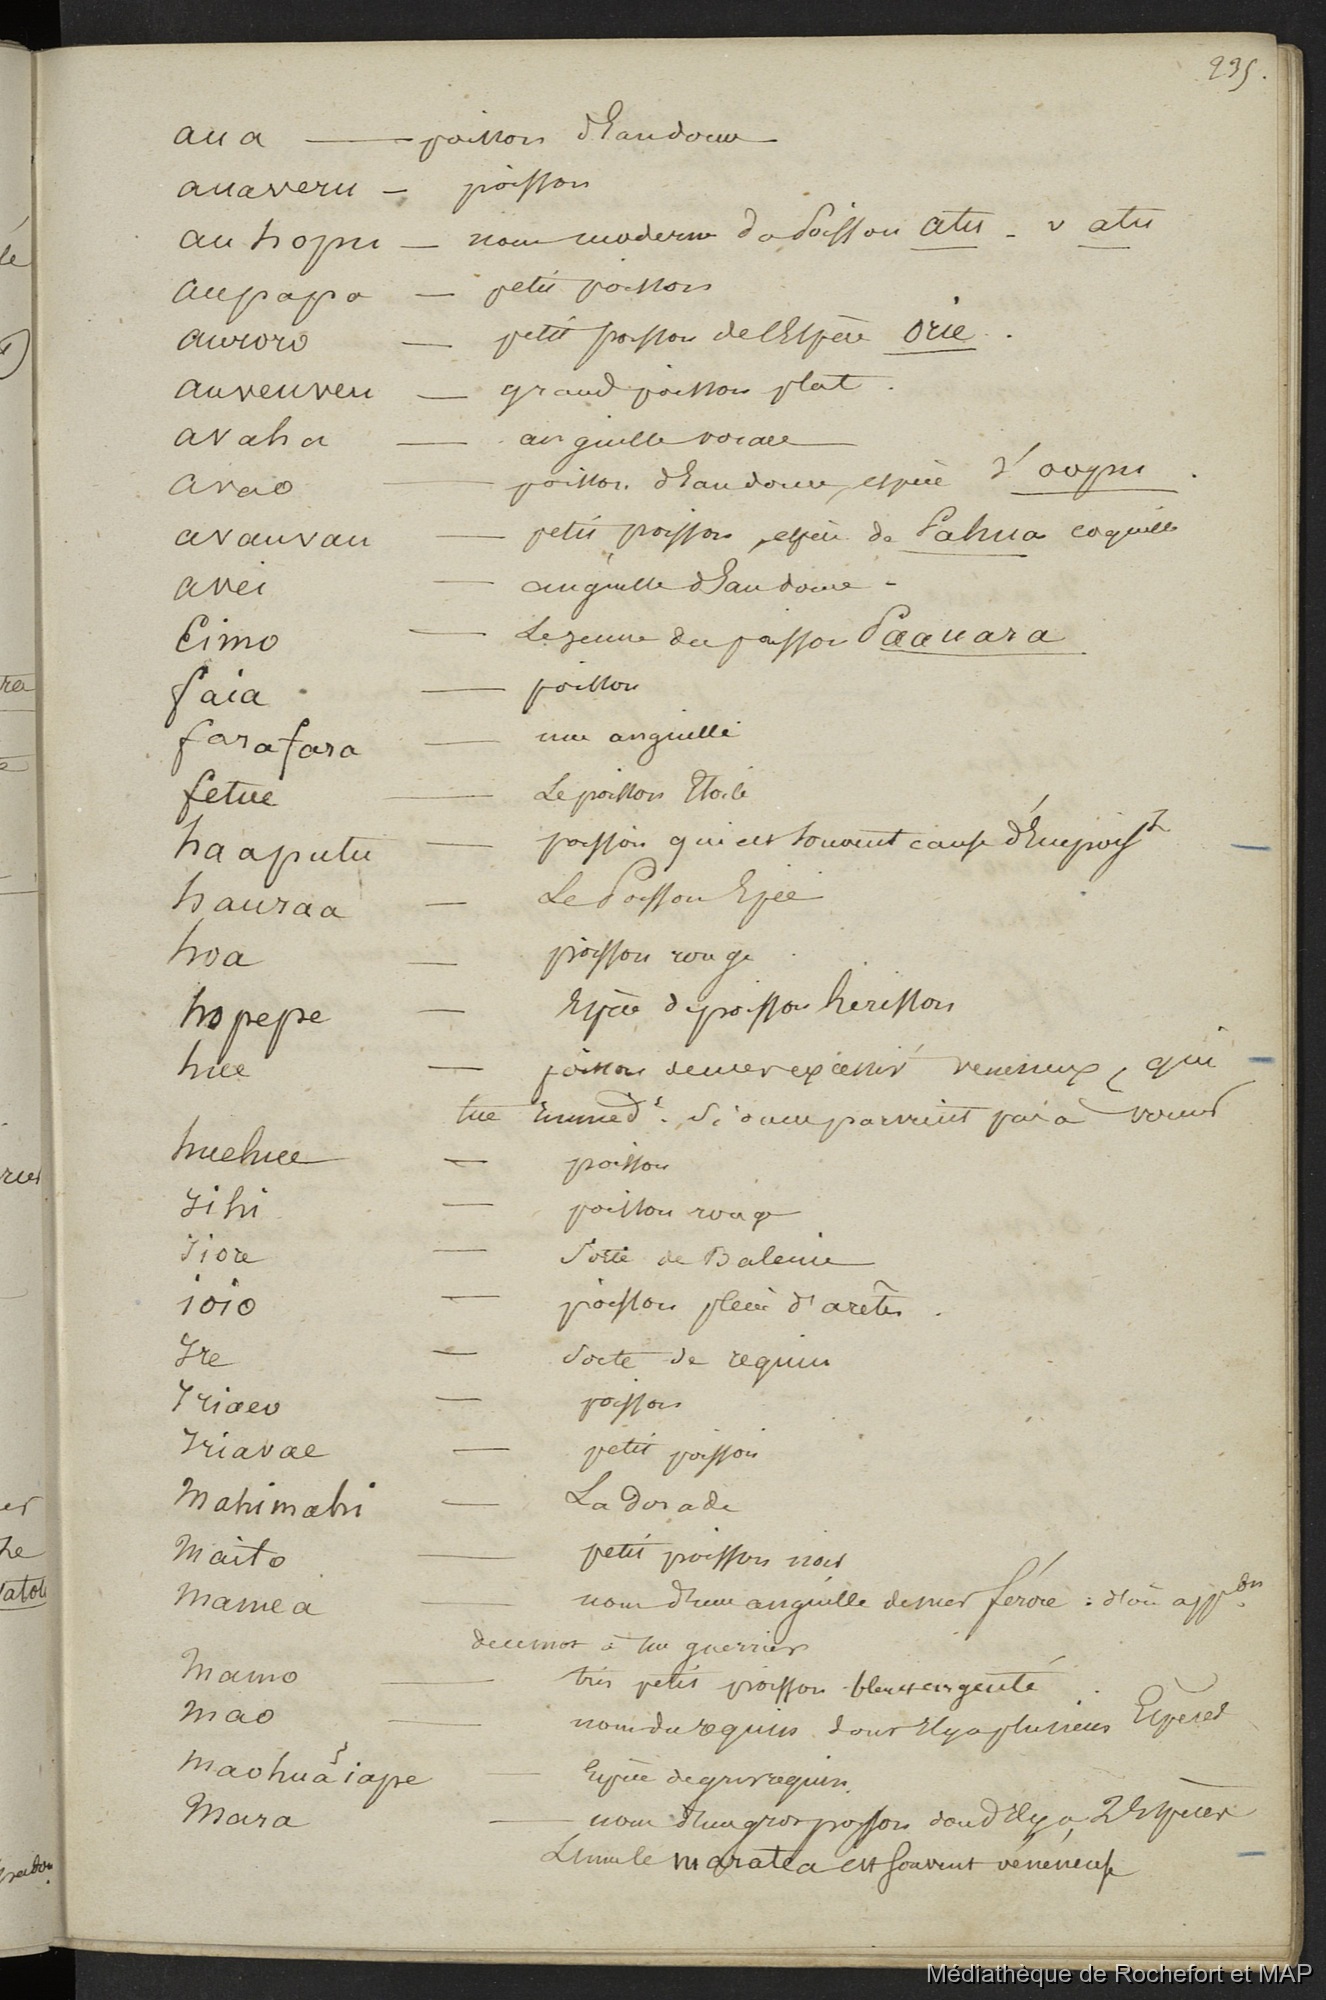 235.
aua — poisson d'Eau douce
auaveru — poisson
auhopu — nom moderne du Poisson atu - v atu
aupapa — petit poisson
auroro — petit poisson de l'Espèce orie.
auveuveu — grand poisson plat.
avaha — anguille vorace
avao — poisson d'Eau douce, espèce d'oopu.
avauvau — petit poisson, espèce de Pahua coquille
avei — anguille d'Eau douce -
Eimo — Le jeune du poisson Paauara
faia — poisson
farafara — une anguille
fetue — Le poisson Etoile
haaputu — poisson qui est souvent cause d'Empoist
hauraa — Le Poisson Epée
hoa — poisson rouge.
hopepe — Espèce de poisson hérisson
hue — poisson de mer excessivt veneneux, qui
tue immedt. si on ne parvient pas à vomir
huehue — poisson
Iihi — poisson rouge
Iiore — sorte de Baleine
ioio — poisson plein d'arêtes.
Ire — sorte de requin
Iriaeo — poisson
Iriavae — petit poisson
Mahimahi — La Dorade
Maito — petit poisson noir
Mamea — nom d'une anguille de mer féroce : d'où appon
de ce mot à un guerrier
Mamo — très petit poisson bleu argenté.
Mao — nom du requin dont il y a plusieurs Espèces
Maohuaiape — Espèce de gros requin.
Mara — nom d'un gros poisson dont il y a 2 Espèces
L'une le maratea est souvent vénéneuse
Médiathèque de Rochefort et MAP